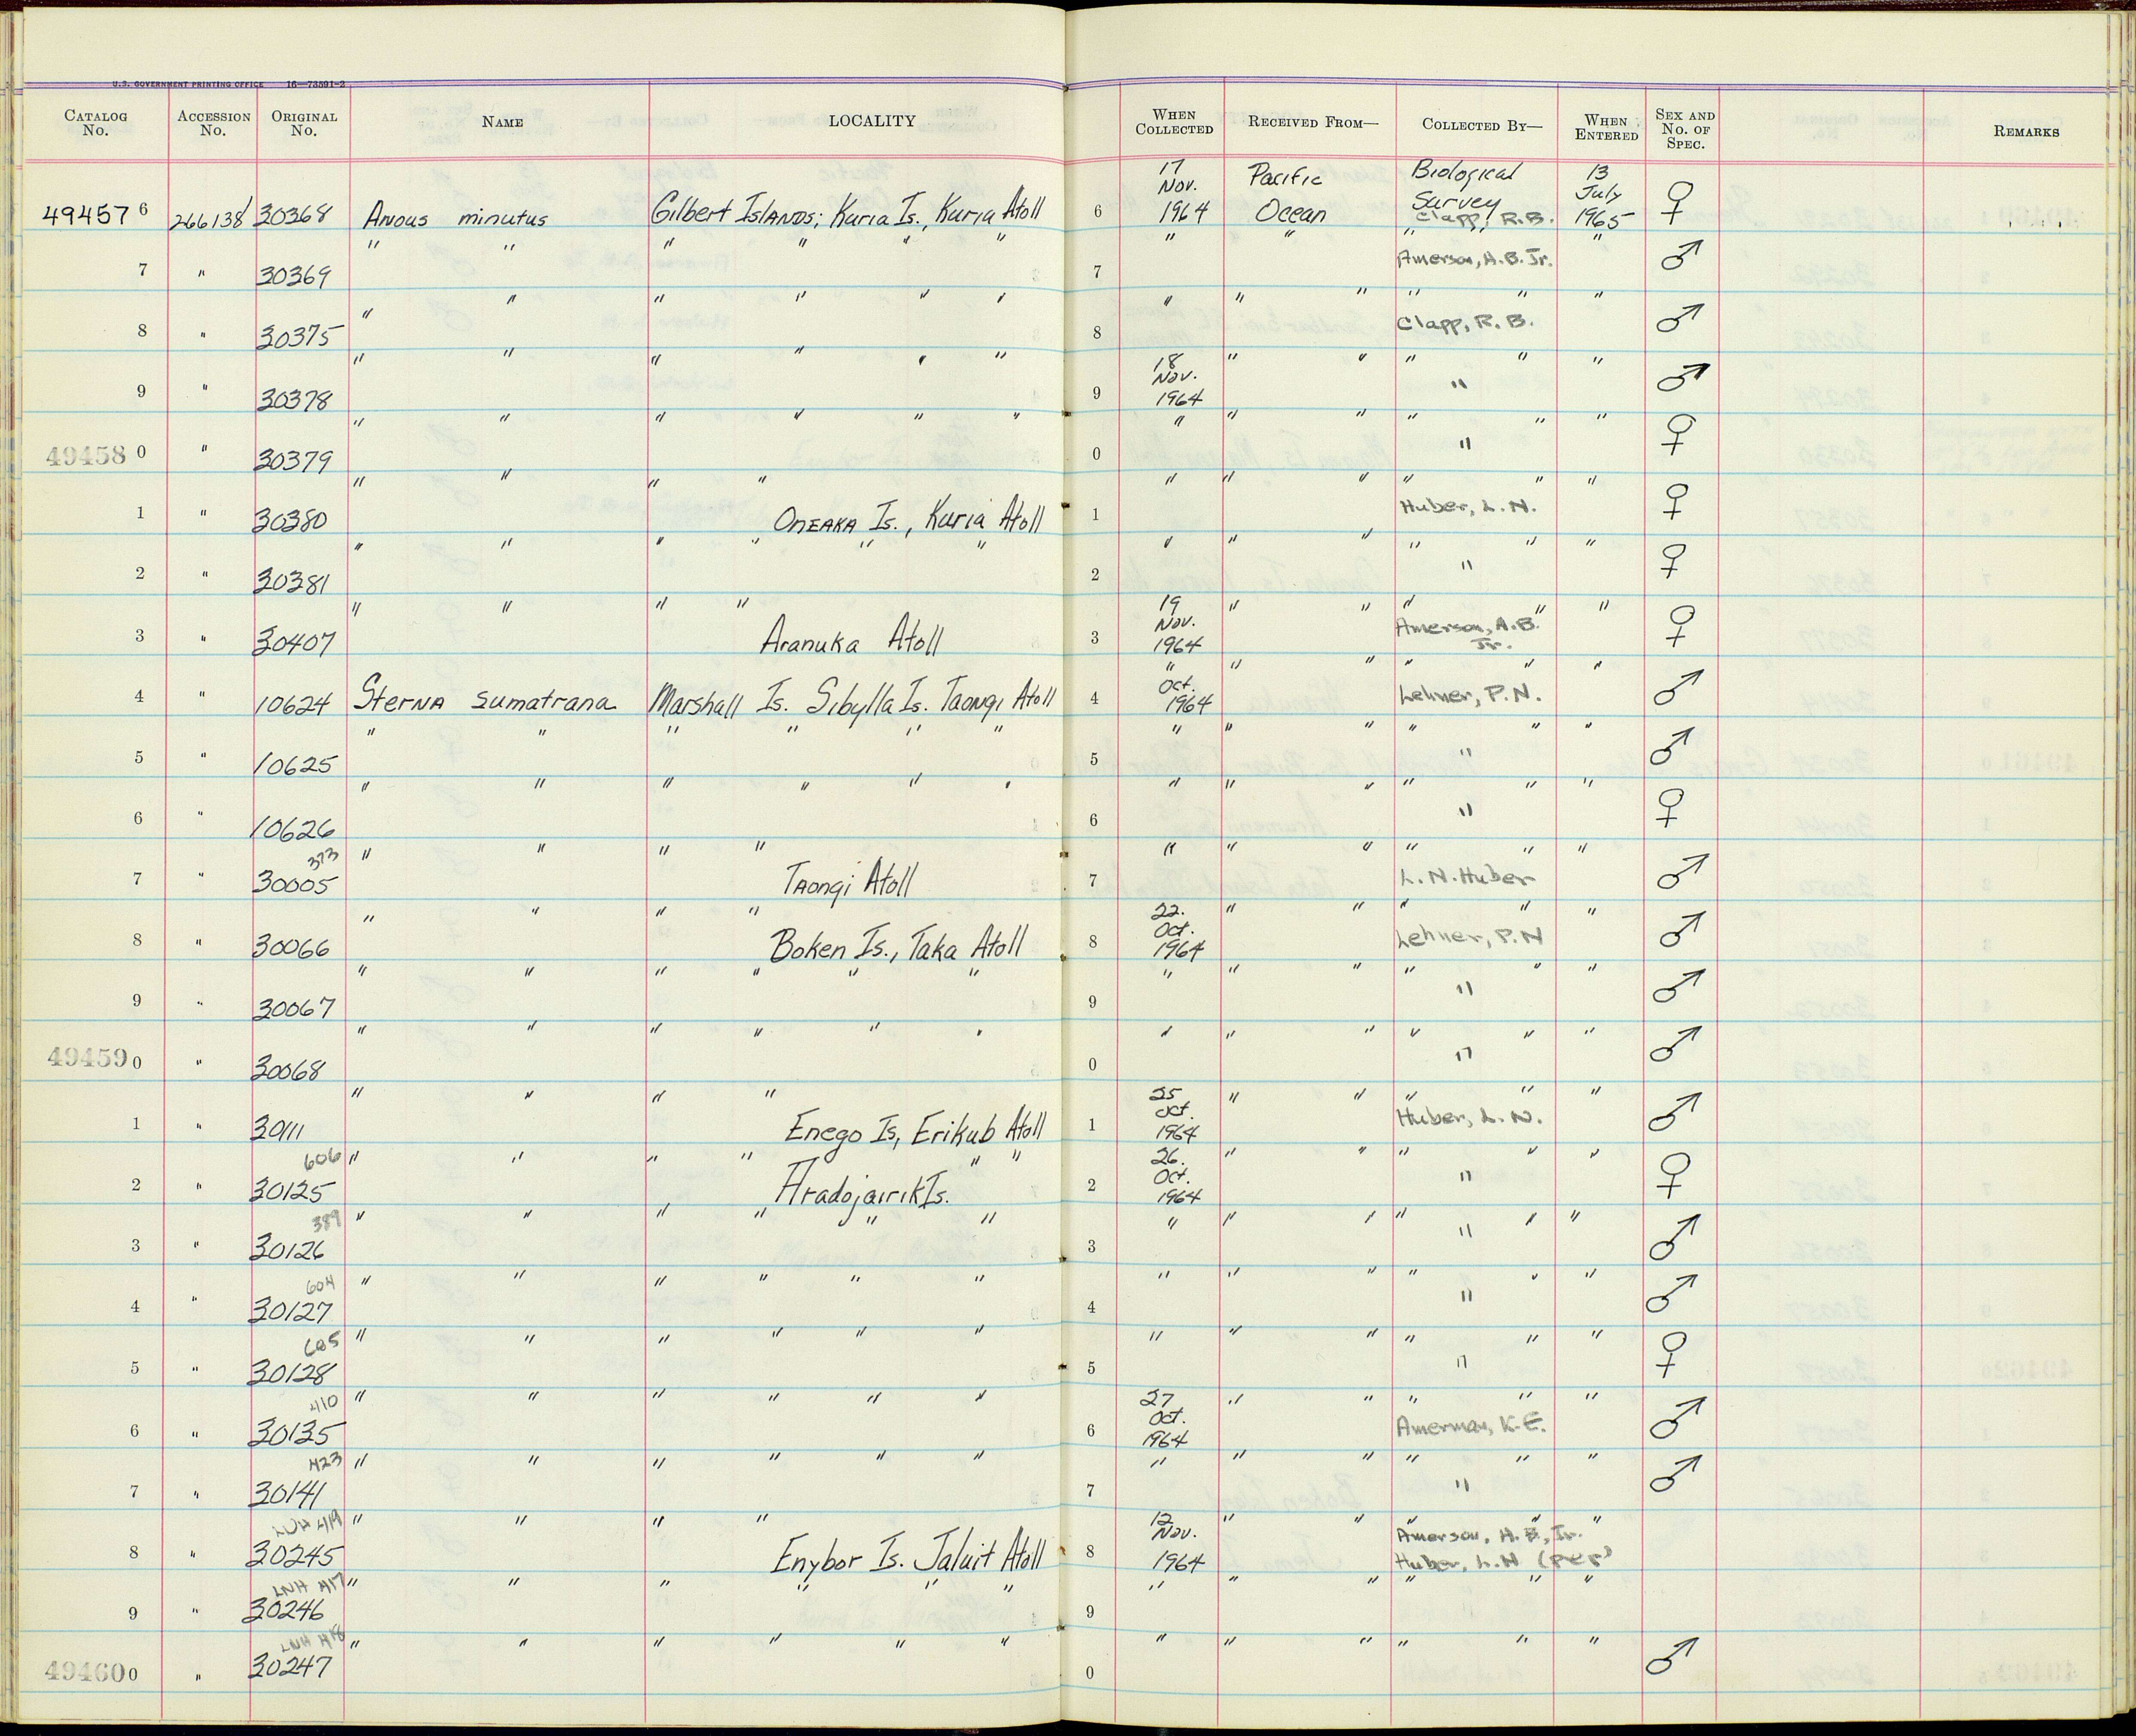 U.S. GOVERNMENT PRINTING OFFICE 16—73591-2
CATALOG No. ACCESSION No. ORIGINAL No. NAME LOCALITY WHEN COLLECTED RECEIVED FROM— COLLECTED BY— WHEN ENTERED SEX AND No. OF SPEC. REMARKS
17 Nov. 1964 Pacific Ocean Biological Survey 13 July 1965
494576 266138 30368 Anous minutus Gilbert Islands; Kuria Is., Kuria Atoll 6 Clapp, R.B. ♀
" " " " " " " " " " "
7 " 30369 7 Amerson, A.B. Jr. ♂
" " " " " " " " " " " "
8 " 30375 8 Clapp, R. B. ♂
" " " " " " 18 Nov. 1964 " " " " "
9 " 30378 9 " ♂
" " " " " " " " " " " "
494580 " 30379 0 " ♀
" " " " " " " " " "
1 " 30380 Oneaka Is., Kuria Atoll 1 Huber, L. N. ♀
" " " " " " " " " " " "
2 " 30381 2 " ♀
" " " " 19 Nov. 1964 " " " " "
3 " 30407 Aranuka Atoll 3 Amerson, A.B. Jr. ♀
" " " " " "
4 " 10624 Sterna sumatrana Marshall Is. Sibylla Is. Taongi Atoll 4 Oct. 1964 Lehner, P.N. ♂
" " " " " " " " " " " "
5 " 10625 5 " ♂
" " " " " " " " " " " "
6 " 10626 6 " ♀
373 " " " " " " " " " "
7 " 30005 Taongi Atoll 7 L. N. Huber ♂
" " " " 22. Oct. 1964 " " " " "
8 " 30066 Boken Is., Taka Atoll 8 Lehner, P.N ♂
" " " " " " " " " " " "
9 " 30067 9 " ♂
" " " " " " " " " " " "
494590 " 30068 0 " ♂
" " " " 25 Oct. 1964 " " " " "
1 " 30111 Enego Is, Erikub Atoll 1 Huber, L. N. ♂
606 " " " " " " 26. Oct. 1964 " " " " "
2 " 30125 Aradojairik Is. 2 " ♀
389 " " " " " " " " " " " "
3 " 30126 3 " ♂
604 " " " " " " " " " " " "
4 " 30127 4 " ♂
605 " " " " " " " " " " " "
5 " 30128 5 " ♀
410 " " " " " " 27 Oct. 1964 " " " " "
6 " 30135 6 Amerman, K.E. ♂
423 " " " " " " " " " " " "
7 " 30141 7 " ♂
LNH 419 " " " " 12 Nov. 1964 " " " " "
8 " 30245 Enybor Is. Jaluit Atoll 8 Amerson, A.B., Jr. Huber, L.N (prep)
LNH 417 " " " " " " " " " " " "
9 " 30246 9
LNH 418 " " " " " " " " " " " "
494600 " 30247 0 ♂